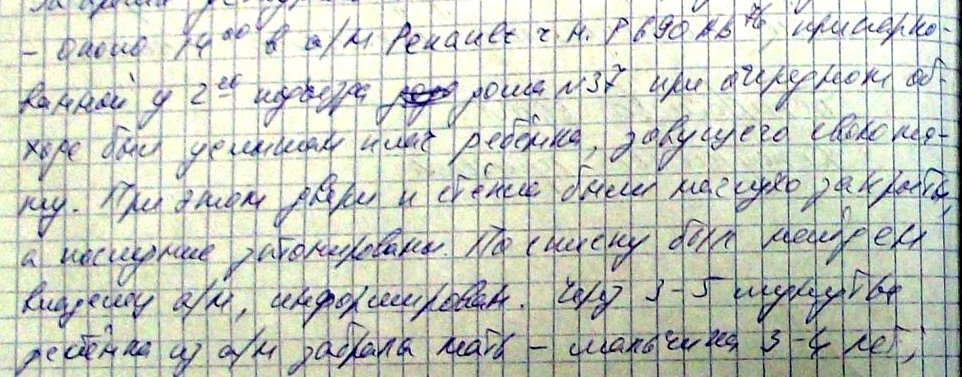 - Около 14⁰⁰ в а/м Рено г.н. Р690АВ⁷⁶, припарко-
ванной у 2ᵒᵍᵒ подъезда дома №37 при очередном об-
ходе был услышан плач ребёнка, зовущего свою ма-
му. При этом двери и стёкла были наглухо закрыты,
а последние затонированы. По списку был найден
владелец а/м, информирован. Через 3-5 минут
ребёнка из а/м забрала мать - мальчика 3-4 лет,